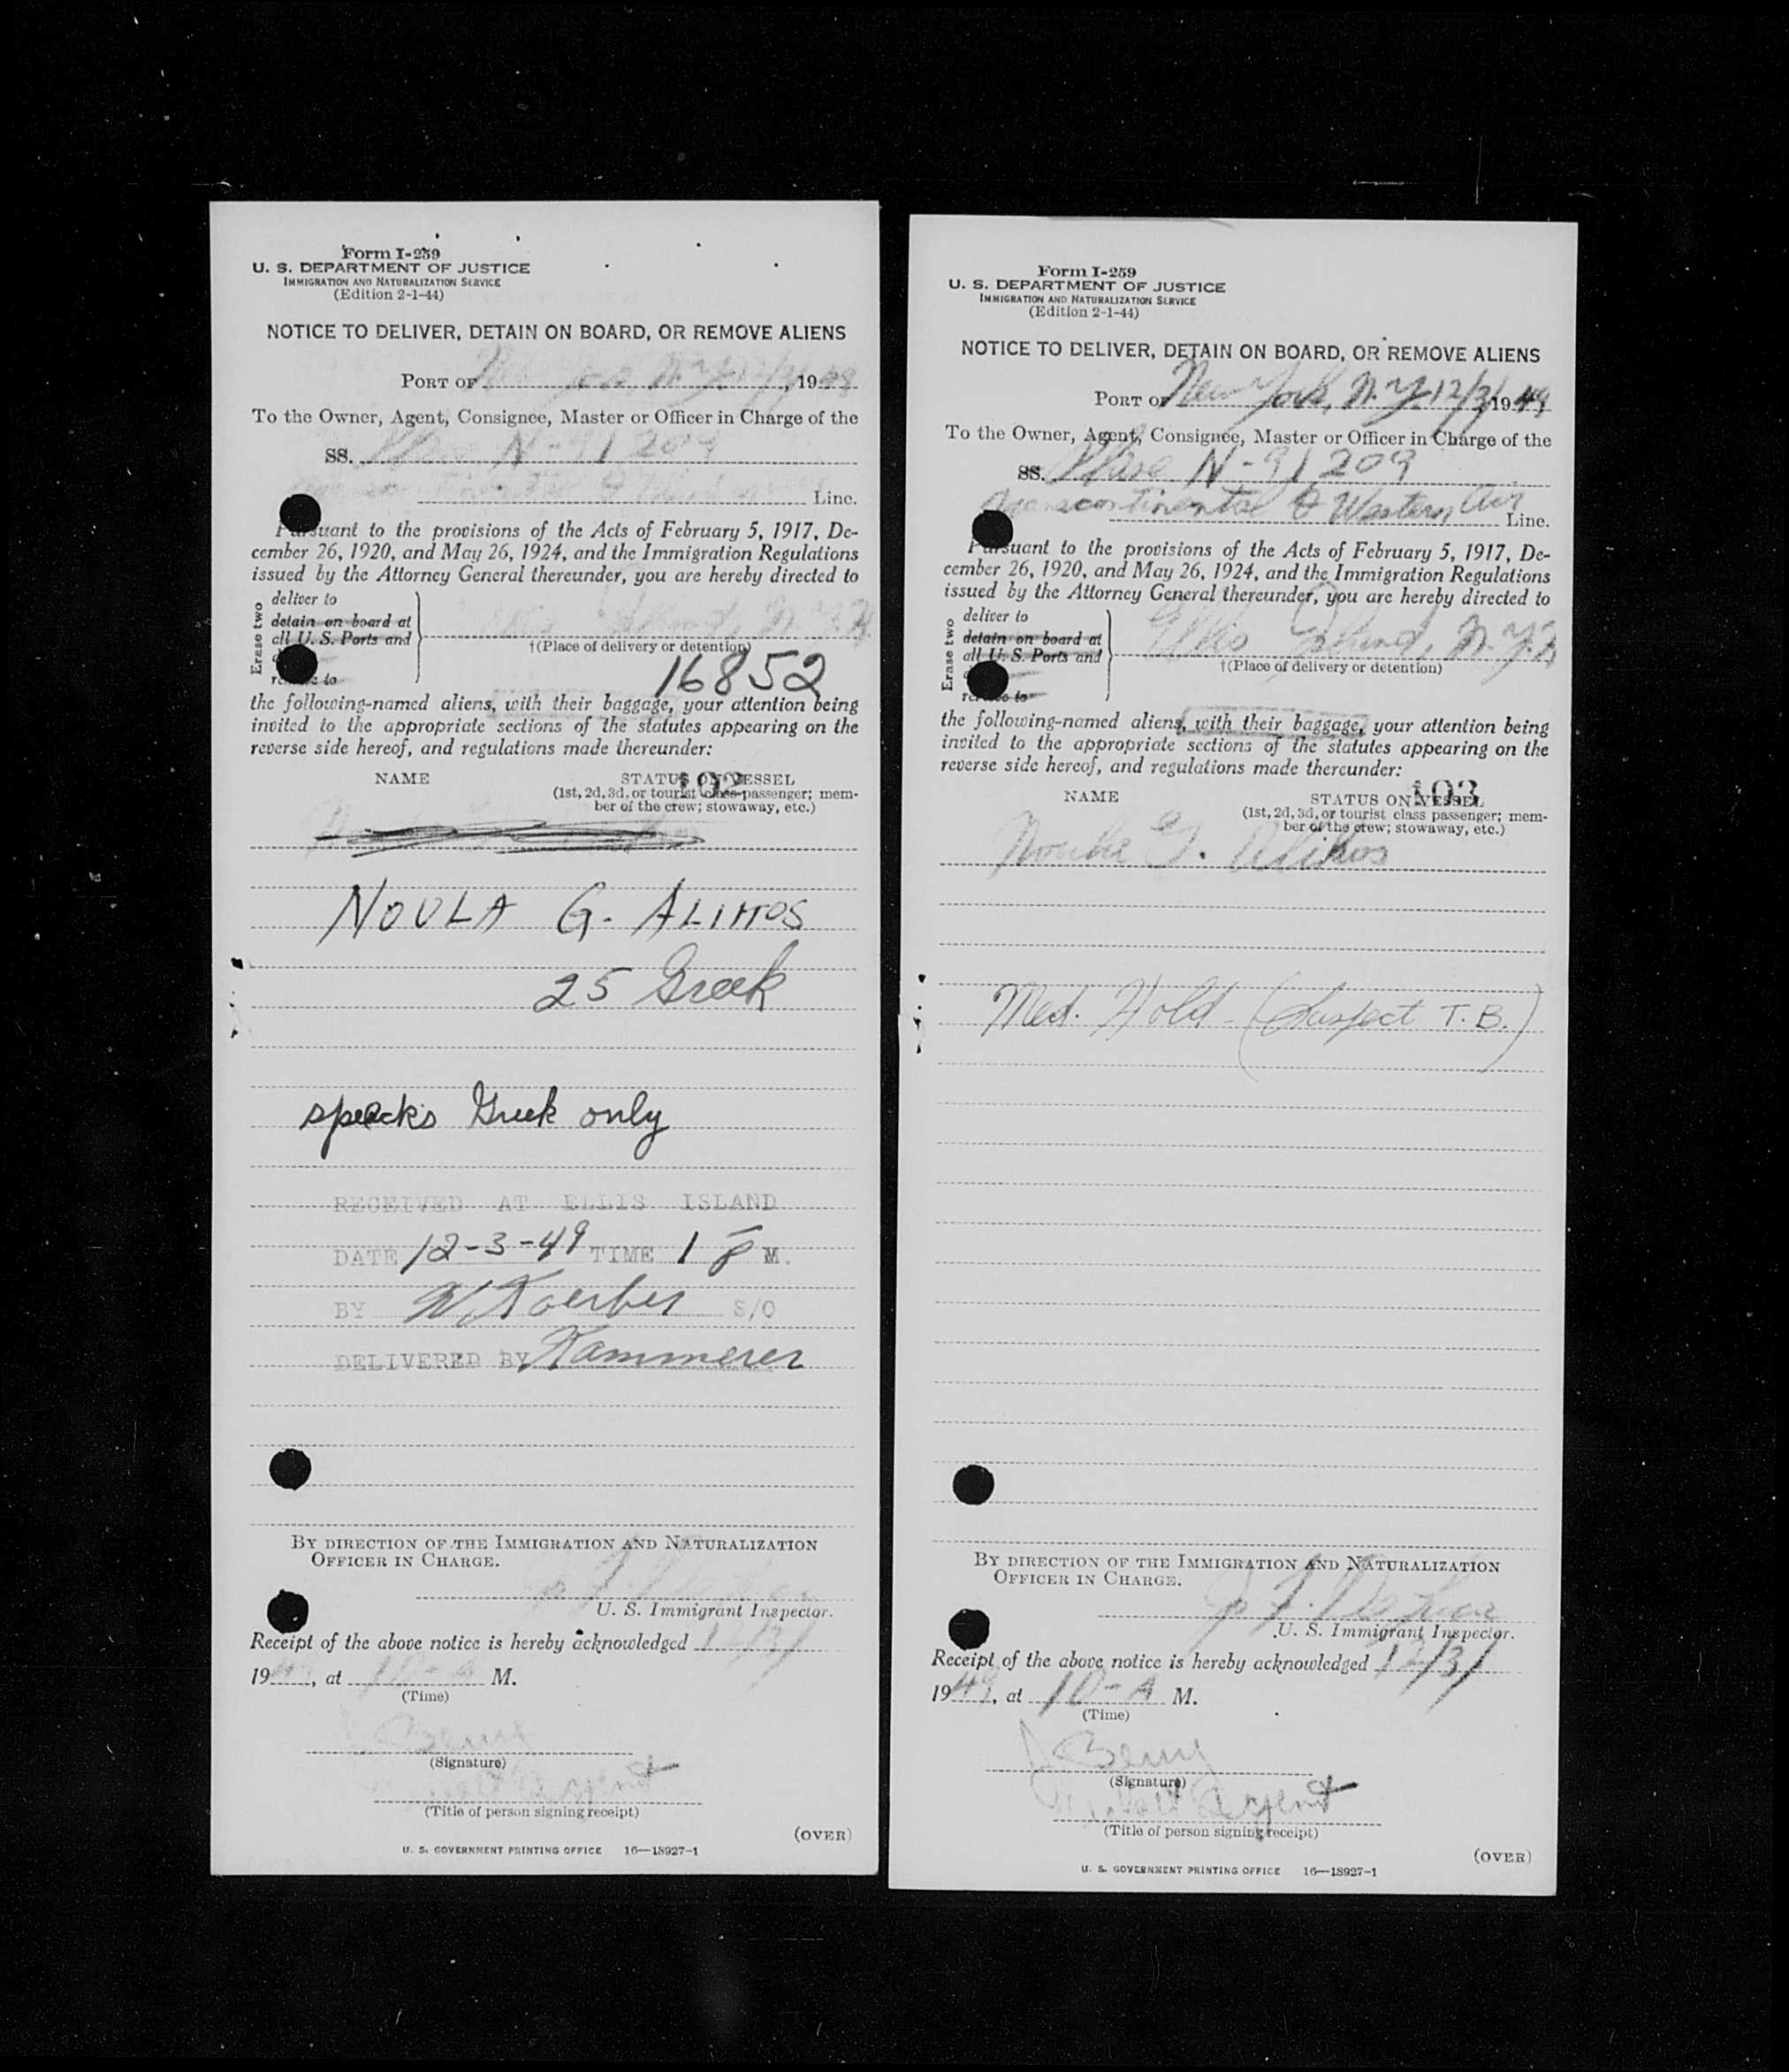 Form I-259
U. S. DEPARTMENT OF JUSTICE
IMMIGRATION AND NATURALIZATION SERVICE
(Edition 2-1-44)
NOTICE TO DELIVER, DETAIN ON BOARD, OR REMOVE ALIENS
PORT OF N.Y. 12/3/, 19
To the Owner, Agent, Consignee, Master or Officer in Charge of the
SS. Plane N-91209
Line.
Pursuant to the provisions of the Acts of February 5, 1917, De-
cember 26, 1920, and May 26, 1924, and the Immigration Regulations
issued by the Attorney General thereunder, you are hereby directed to
Erase two
deliver to
detain on board at
all U. S. Ports and
remove to
Island, N.Y.H.
†(Place of delivery or detention)
16852
the following-named aliens, with their baggage, your attention being
invited to the appropriate sections of the statutes appearing on the
reverse side hereof, and regulations made thereunder:
102
NAME STATUS ON VESSEL
(1st, 2d, 3d, or tourist class passenger; mem-
ber of the crew; stowaway, etc.)
NOULA G. ALIMOS
25 Greek
speacks Greek only
RECEIVED AT ELLIS ISLAND
DATE 12-3-49 TIME 1 P M.
BY W. Koerber S/O
DELIVERED BY Kammerer
BY DIRECTION OF THE IMMIGRATION AND NATURALIZATION
OFFICER IN CHARGE.
U. S. Immigrant Inspector.
Receipt of the above notice is hereby acknowledged 12/3/
19, at 10-A M.
(Time)
Berry
(Signature)
Agent
(Title of person signing receipt)
(OVER)
U. S. GOVERNMENT PRINTING OFFICE 16—18927-1
Form I-259
U. S. DEPARTMENT OF JUSTICE
IMMIGRATION AND NATURALIZATION SERVICE
(Edition 2-1-44)
NOTICE TO DELIVER, DETAIN ON BOARD, OR REMOVE ALIENS
PORT OF New York, N.Y. 12/3/ 1949
To the Owner, Agent, Consignee, Master or Officer in Charge of the
SS. Plane N-91209
Transcontinental & Western Air Line.
Pursuant to the provisions of the Acts of February 5, 1917, De-
cember 26, 1920, and May 26, 1924, and the Immigration Regulations
issued by the Attorney General thereunder, you are hereby directed to
Erase two
deliver to
detain on board at
all U. S. Ports and
remove to
Ellis Island, N.Y.H.
†(Place of delivery or detention)
the following-named aliens, with their baggage, your attention being
invited to the appropriate sections of the statutes appearing on the
reverse side hereof, and regulations made thereunder:
103
NAME STATUS ON VESSEL
(1st, 2d, 3d, or tourist class passenger; mem-
ber of the crew; stowaway, etc.)
G.
Med. Hold - (Suspect T.B.)
BY DIRECTION OF THE IMMIGRATION AND NATURALIZATION
OFFICER IN CHARGE.
U. S. Immigrant Inspector.
Receipt of the above notice is hereby acknowledged 12/3/
1949, at 10-A M.
(Time)
Berry
(Signature)
Agent
(Title of person signing receipt)
(OVER)
U. S. GOVERNMENT PRINTING OFFICE 16—18927-1